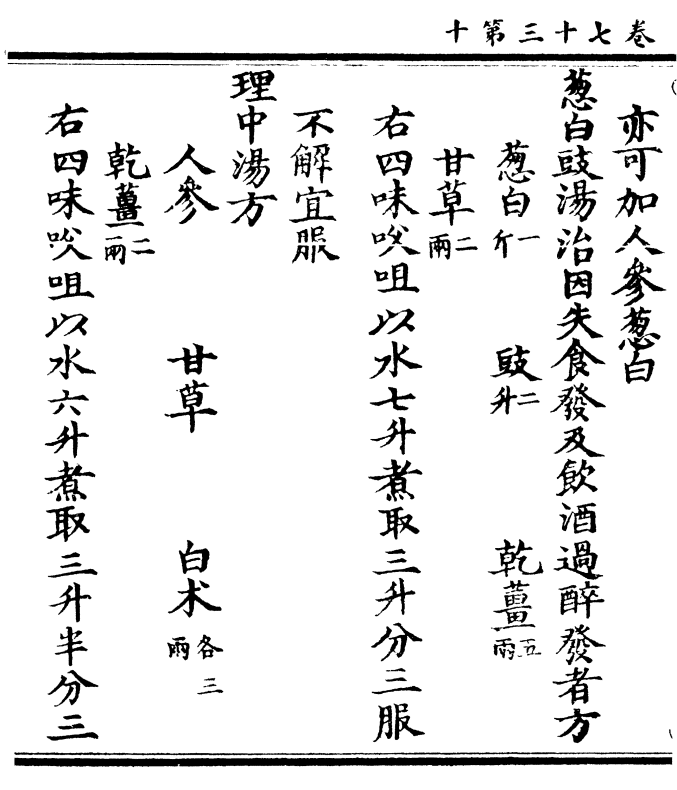 卷七十三第十
亦可加人參葱白
葱白豉湯治因失食發及飲酒過醉發者方
葱白一斤 豉二升 乾薑五兩
甘草二兩
右四味㕮咀以水七升煮取三升分三服
不解宜服
理中湯方
人參 甘草 白术各三兩
乾薑二兩
右四味㕮咀以水六升煮取三升半分三